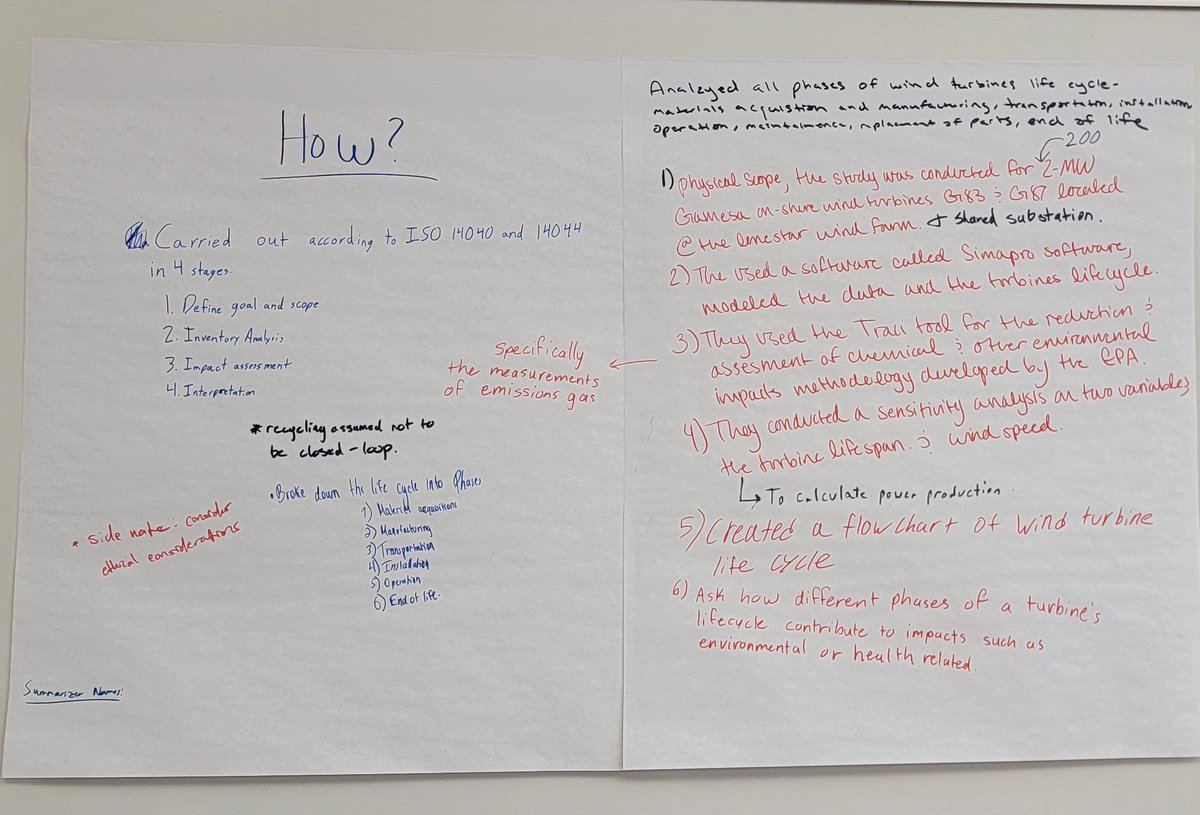 How?
Carried out according to ISO 14040 and 14044
in 4 stages.
1. Define goal and scope
2. Inventory Analysis
3. Impact assessment
4. Interpretation
* recycling assumed not to
be closed-loop.
• Broke down the life cycle into Phases
1) Material acquisitions
2) Manufacturing
3) Transportation
4) Installation
5) Operation
6) End of life.
* side note: consider
ethical considerations
Summarizer Names:
Analzyed all phases of wind turbines life cycle-
materials acquistion and manufacturing, transportation, installation
operation, maintainence, replacment of parts, end of life
200
1) physical scope, the study was conducted for 2-MW
Gamesa on-shore wind turbines G83 & G87 located
@ the lonestar wind farm. + shared substation.
2) The used a software called Simapro software,
modeled the data and the turbines lifecycle.
3) They used the Traci tool for the reduction &
assesment of chemical & other environmental
impacts methodology developed by the EPA.
specifically
the measurements
of emissions gas
4) They conducted a sensitivity analysis on two variables,
the turbine lifespan. & wind speed.
To calculate power production.
5) Created a flowchart of wind turbine
life cycle
6) Ask how different phases of a turbine's
lifecycle contribute to impacts such as
environmental or health related.